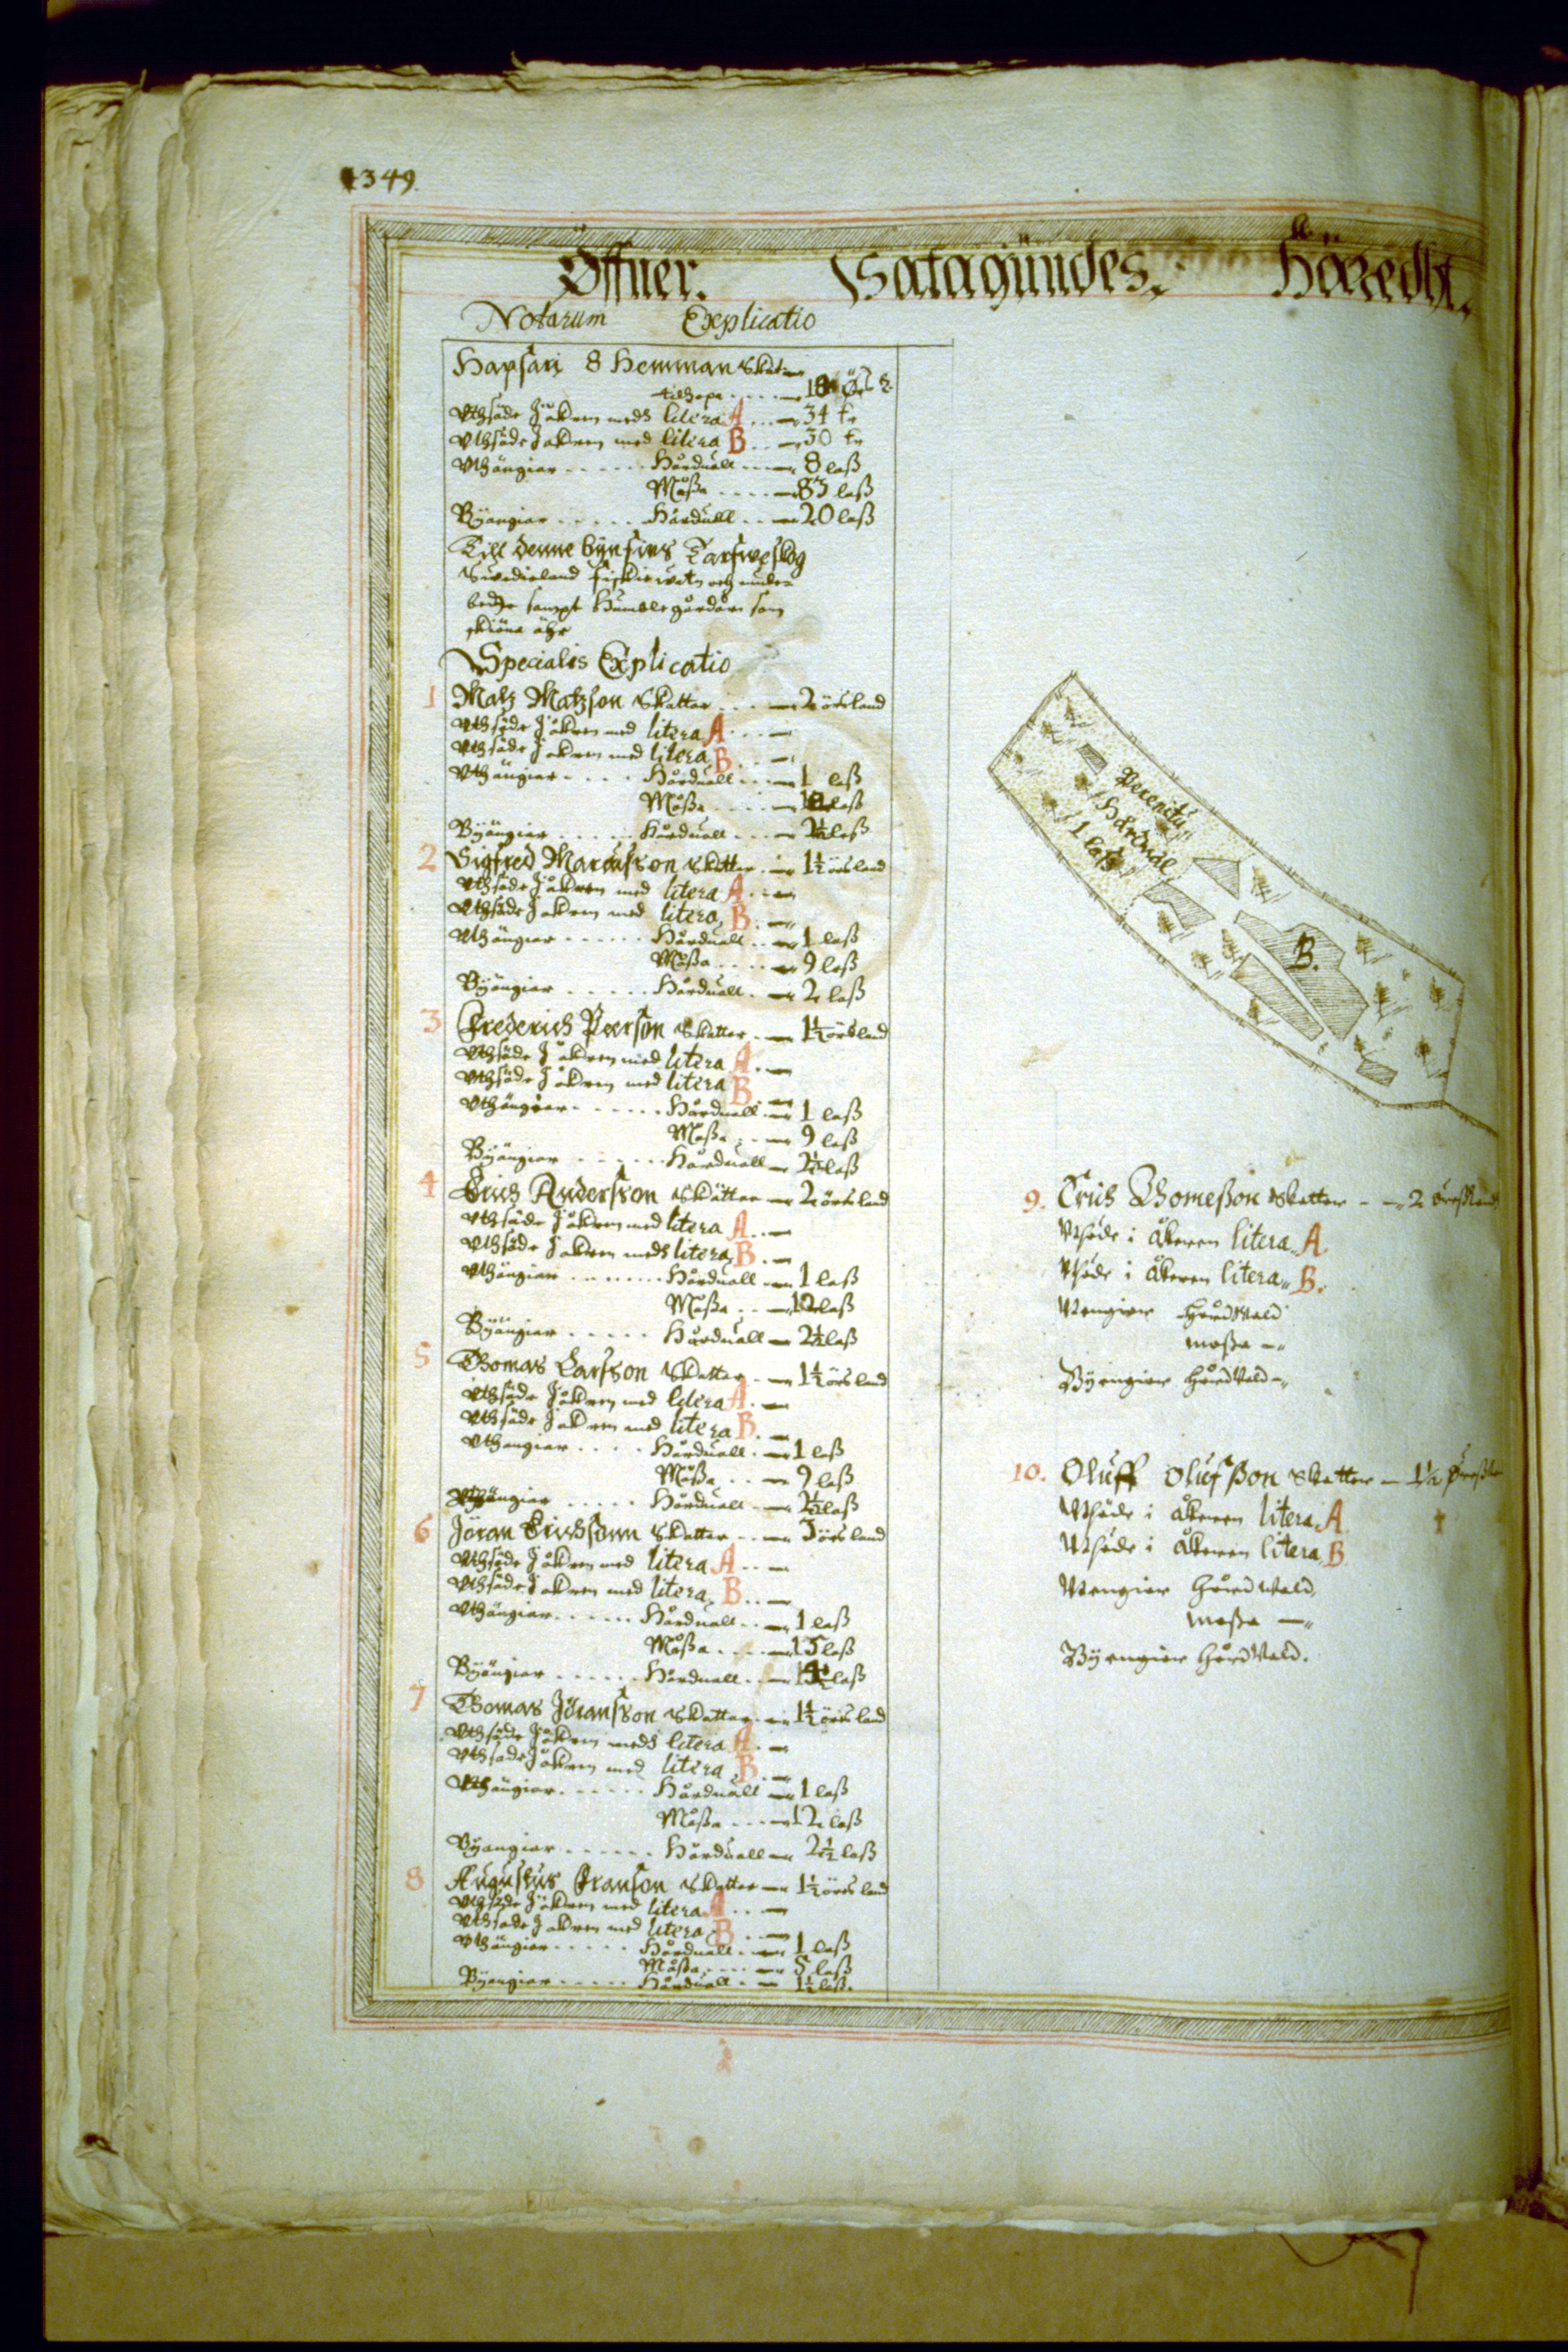 1349
Öffner. Satagündes. Häredht.
Notarum Explicatio
Hapsari 8 Hemman Skat
tilhopa
Vthsäde J åkren medh litera A 34 tr
Vthsäde J åkren med litera B 30 tr
Vthängiar Hårduall 8 laß
Måßa 83 laß
Byängiar Hårduall 20 laß
Till denne byn fins Tarfweskog
Swedieland fiskiewatn och
sampt Humblegårdar som
sköna ähr
Specialis Explicatio
1 Matz Matzson Skatter 2 örsland
Vthsäde J åkren med litera A
Vthsäde J åkren med litera B
Vthängiar Hårduall 1 laß
Måßa laß
Byängiar Hårduall 2½ laß
2 Sigfred Marcusson Skatter 1½ örsland
Vthsäde J åkren med litera A
Vthsäde J åkren med litera B
Vthängiar Hårduall 1 laß
Måßa 9 laß
Byängiar Hårduall 2 laß
3 Frederich Peerson Skatter 1½ örsland
Vthsäde J åkren med litera A
Vthsäde J åkren med litera B
Vthängiar Hårduall 1 laß
Måßa 9 laß
Byängiar Hårduall 2½ laß
4 Erich Andersson Skatter 2 örsland
Vthsäde J åkren med litera A
Vthsäde J åkren medh litera B
Vthängiar Hårduall 1 laß
Måßa 12 laß
Byängiar Hårduall 2½ laß
5 Thomas Larsson Skatter 1½ örsland
Vthsäde J åkren med litera A
Vthsäde J åkren med litera B
Vthängiar Hårduall 1 laß
Måßa 9 laß
Hårduall 2½ laß
6 Jöran Erichsonn Skatter 3 örsland
Vthsäde J åkren med litera A
Vthsäde J åkren med litera B
Vthängiar Hårduall 1 laß
Måßa 15 laß
Byängiar Hårduall laß
7 Thomas Jöransson Skatter 1½ örsland
Vthsäde J åkren medh litera A
Vthsäde J åkren med litera B
Vthängiar Hårduall 1 laß
Måßa 12 laß
Byängiar Hårduall 2½ laß
8 Augustus Franson Skatter 1½ örsland
Vthsäde J åkren med litera A
Vthsäde J åkren med litera B
Vthängiar Hårduall 1 laß
Måßa 5 laß
Byängiar Hårduall 1½ laß.
Hårdval
1 laß
B.
9. Erich Thomeßon Skatter 2 öreßland
Vtsäde i åkeren litera A.
Vtsäde i åkeren litera B.
Vtengier hårdwald
moßa
Byengier hårdwald
10. Oluff Olufßon Skatter 1½
Vtsäde i åkeren litera A
Vtsäde i åkeren litera B
Vtengier hårdwald
moßa
Byengier hårdwald.